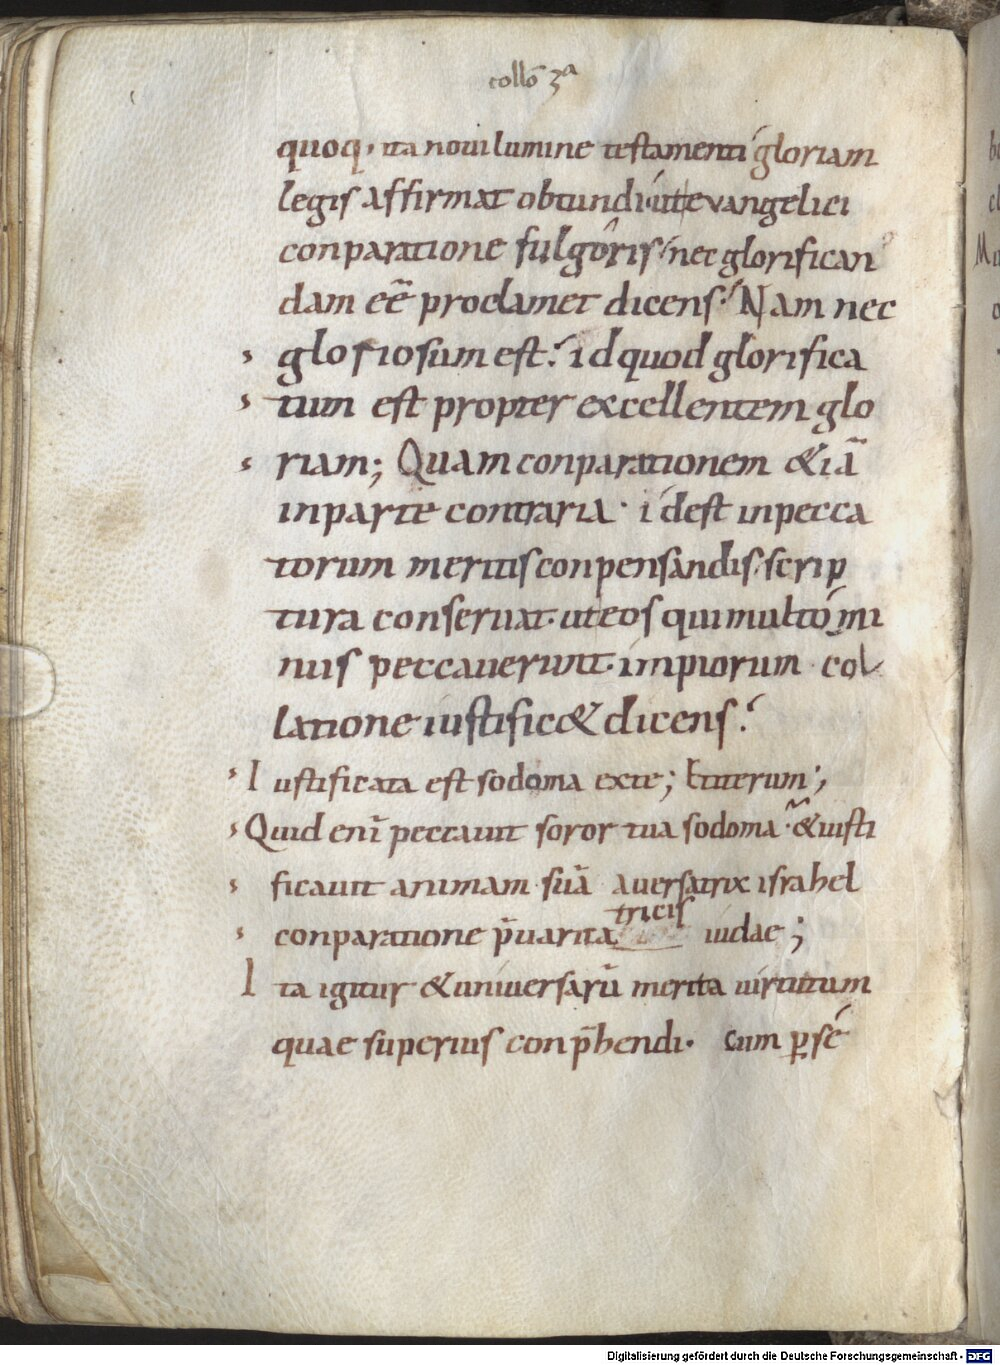 collō 3ª
quoq· ita noui lumine testamenti gloriam
legis affirmat obtundi· ut evangelici
conparatione fulgoris nec glorifican
dam eē proclamet dicens· Nam nec
gloriosum est· id quod glorifica
tum est propter excellentem glo
riam; Quam conparationem & iā
in parte contraria· id est in pecca
torum meritis conpensandis· scrip
tura conseruat· ut eos qui multo mi
nus peccauerunt· impiorum col
latione iustific& dicens·
Iustificata est sodoma ex te; Et iterum;
Quid enī peccauit soror tua sodoma· & iusti
ficauit animam suā aversatrix israhel
tricis
conparatione p̄uarica iudae;
Ita igitur & universarū merita uirtutum
quae superius conp̄hendi· cum p̱ se
Digitalisierung gefördert durch die Deutsche Forschungsgemeinschaft - DFG